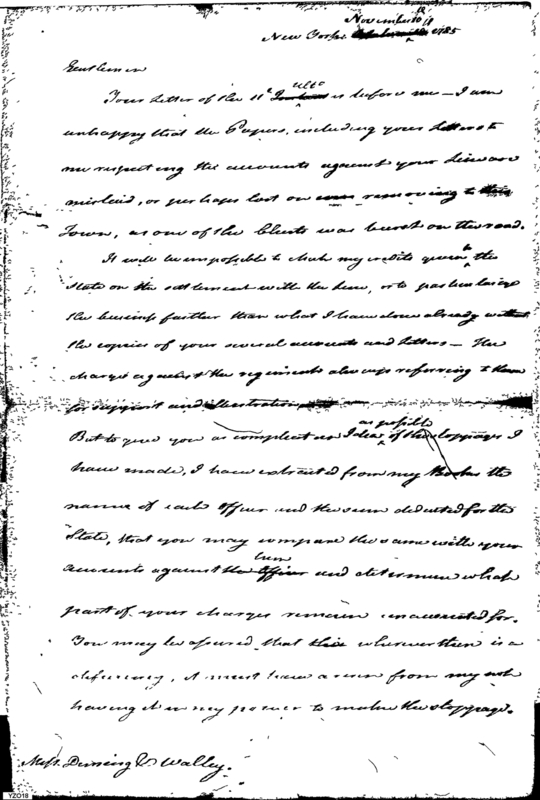 November 18
New York 1785
Gentlemen
ulto
Your Letter of the 11th is before me — I am
unhappy that the Papers, including your Letters to
me respecting the accounts against your Line are
mislaid, or perhaps lost on removing to this
Town, as one of the Chests was burst on the road.
It will be impossible to check my credits given to the
State on the settlement with the Line, or to particularize
the business further than what I have done already without
the copies of your several accounts and Letters — The
charges against the regiments always referring to them
for support and illustration
as possible
But to give you as compleat an Idea of the stoppages I
have made, I have extracted from my Books the
name of each Officer and the sum deducted for the
State, that you may compare the same with your
him
accounts against the Officer and determine what
part of your charges remain unaccounted for.
You may be assured that wherever there is a
deficiency, it must have arisen from my not
having it in my power to make the stoppage.
Messrs. Deming & Walley.
YZO18